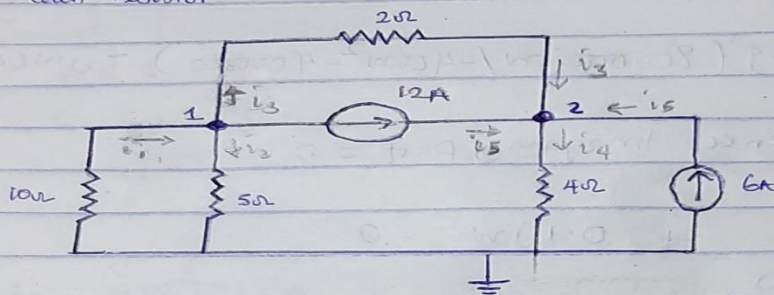 2Ω
i3
i3
12A
1
2
i5
i2
i4
10Ω
5Ω
4Ω
6A